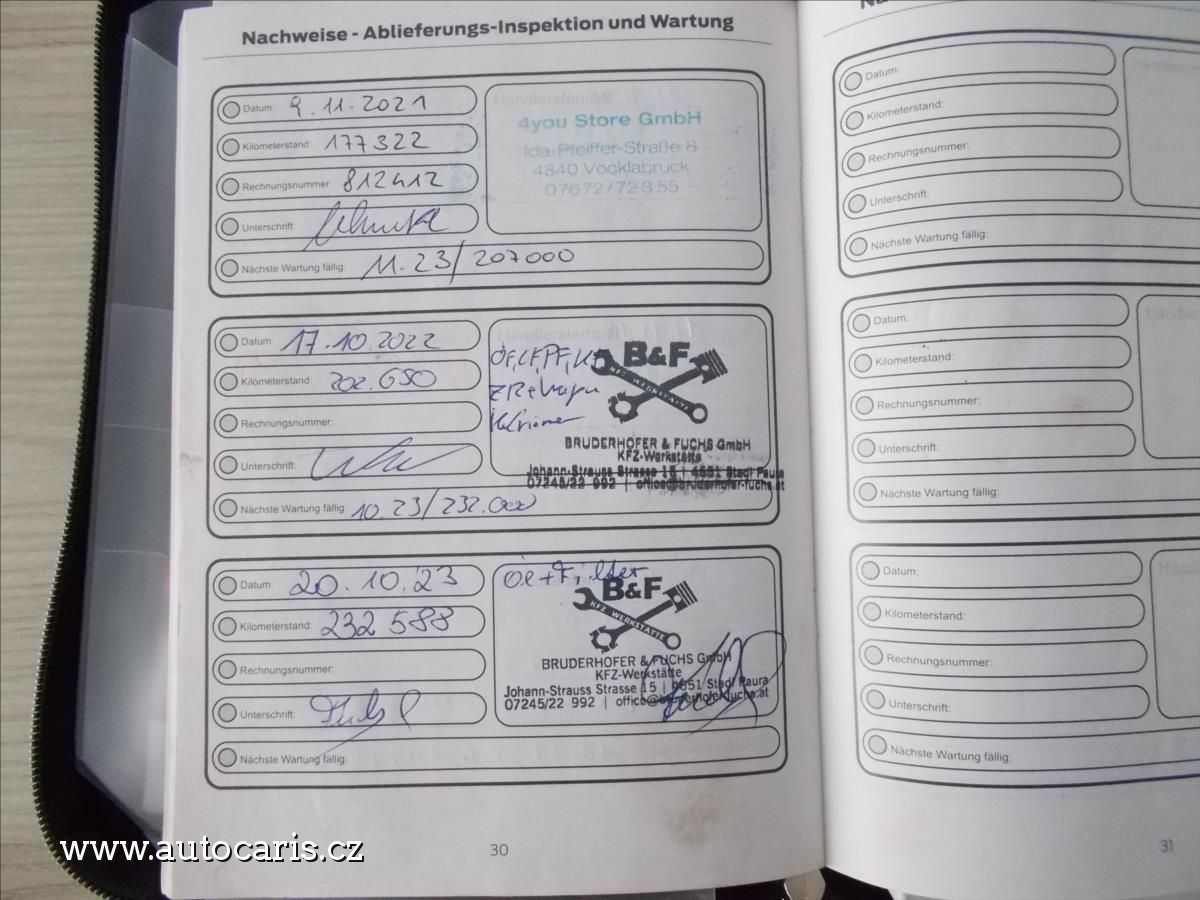 Nachweise - Ablieferungs-Inspektion und Wartung
Datum: 9.11.2021
Kilometerstand: 177322
Rechnungsnummer: 812412
Unterschrift:
Nächste Wartung fällig: 11.23/207000
Händlerstempel
4you Store GmbH
Ida-Pfeiffer-Straße 8
4840 Vöcklabruck
07672/72855
Datum: 17.10.2022
Kilometerstand: 202.650
Rechnungsnummer:
Unterschrift:
Nächste Wartung fällig: 10.23/232.000
Händlerstempel
B&F
KFZ WERKSTÄTTE
BRUDERHOFER & FUCHS GmbH
KFZ-Werkstätte
Johann-Strauss Strasse 15 | 4651 Stadl Paura
07245/22 992 | office@bruderhofer-fuchs.at
Datum: 20.10.23
Kilometerstand: 232 588
Rechnungsnummer:
Unterschrift:
Nächste Wartung fällig:
Öl + Filter
B&F
KFZ WERKSTÄTTE
BRUDERHOFER & FUCHS GmbH
KFZ-Werkstätte
Johann-Strauss Strasse 15 | 4651 Stadl Paura
07245/22 992 | office@bruderhofer-fuchs.at
30
Datum:
Kilometerstand:
Rechnungsnummer:
Unterschrift:
Nächste Wartung fällig:
Datum:
Kilometerstand:
Rechnungsnummer:
Unterschrift:
Nächste Wartung fällig:
Datum:
Kilometerstand:
Rechnungsnummer:
Unterschrift:
Nächste Wartung fällig:
31
www.autocaris.cz